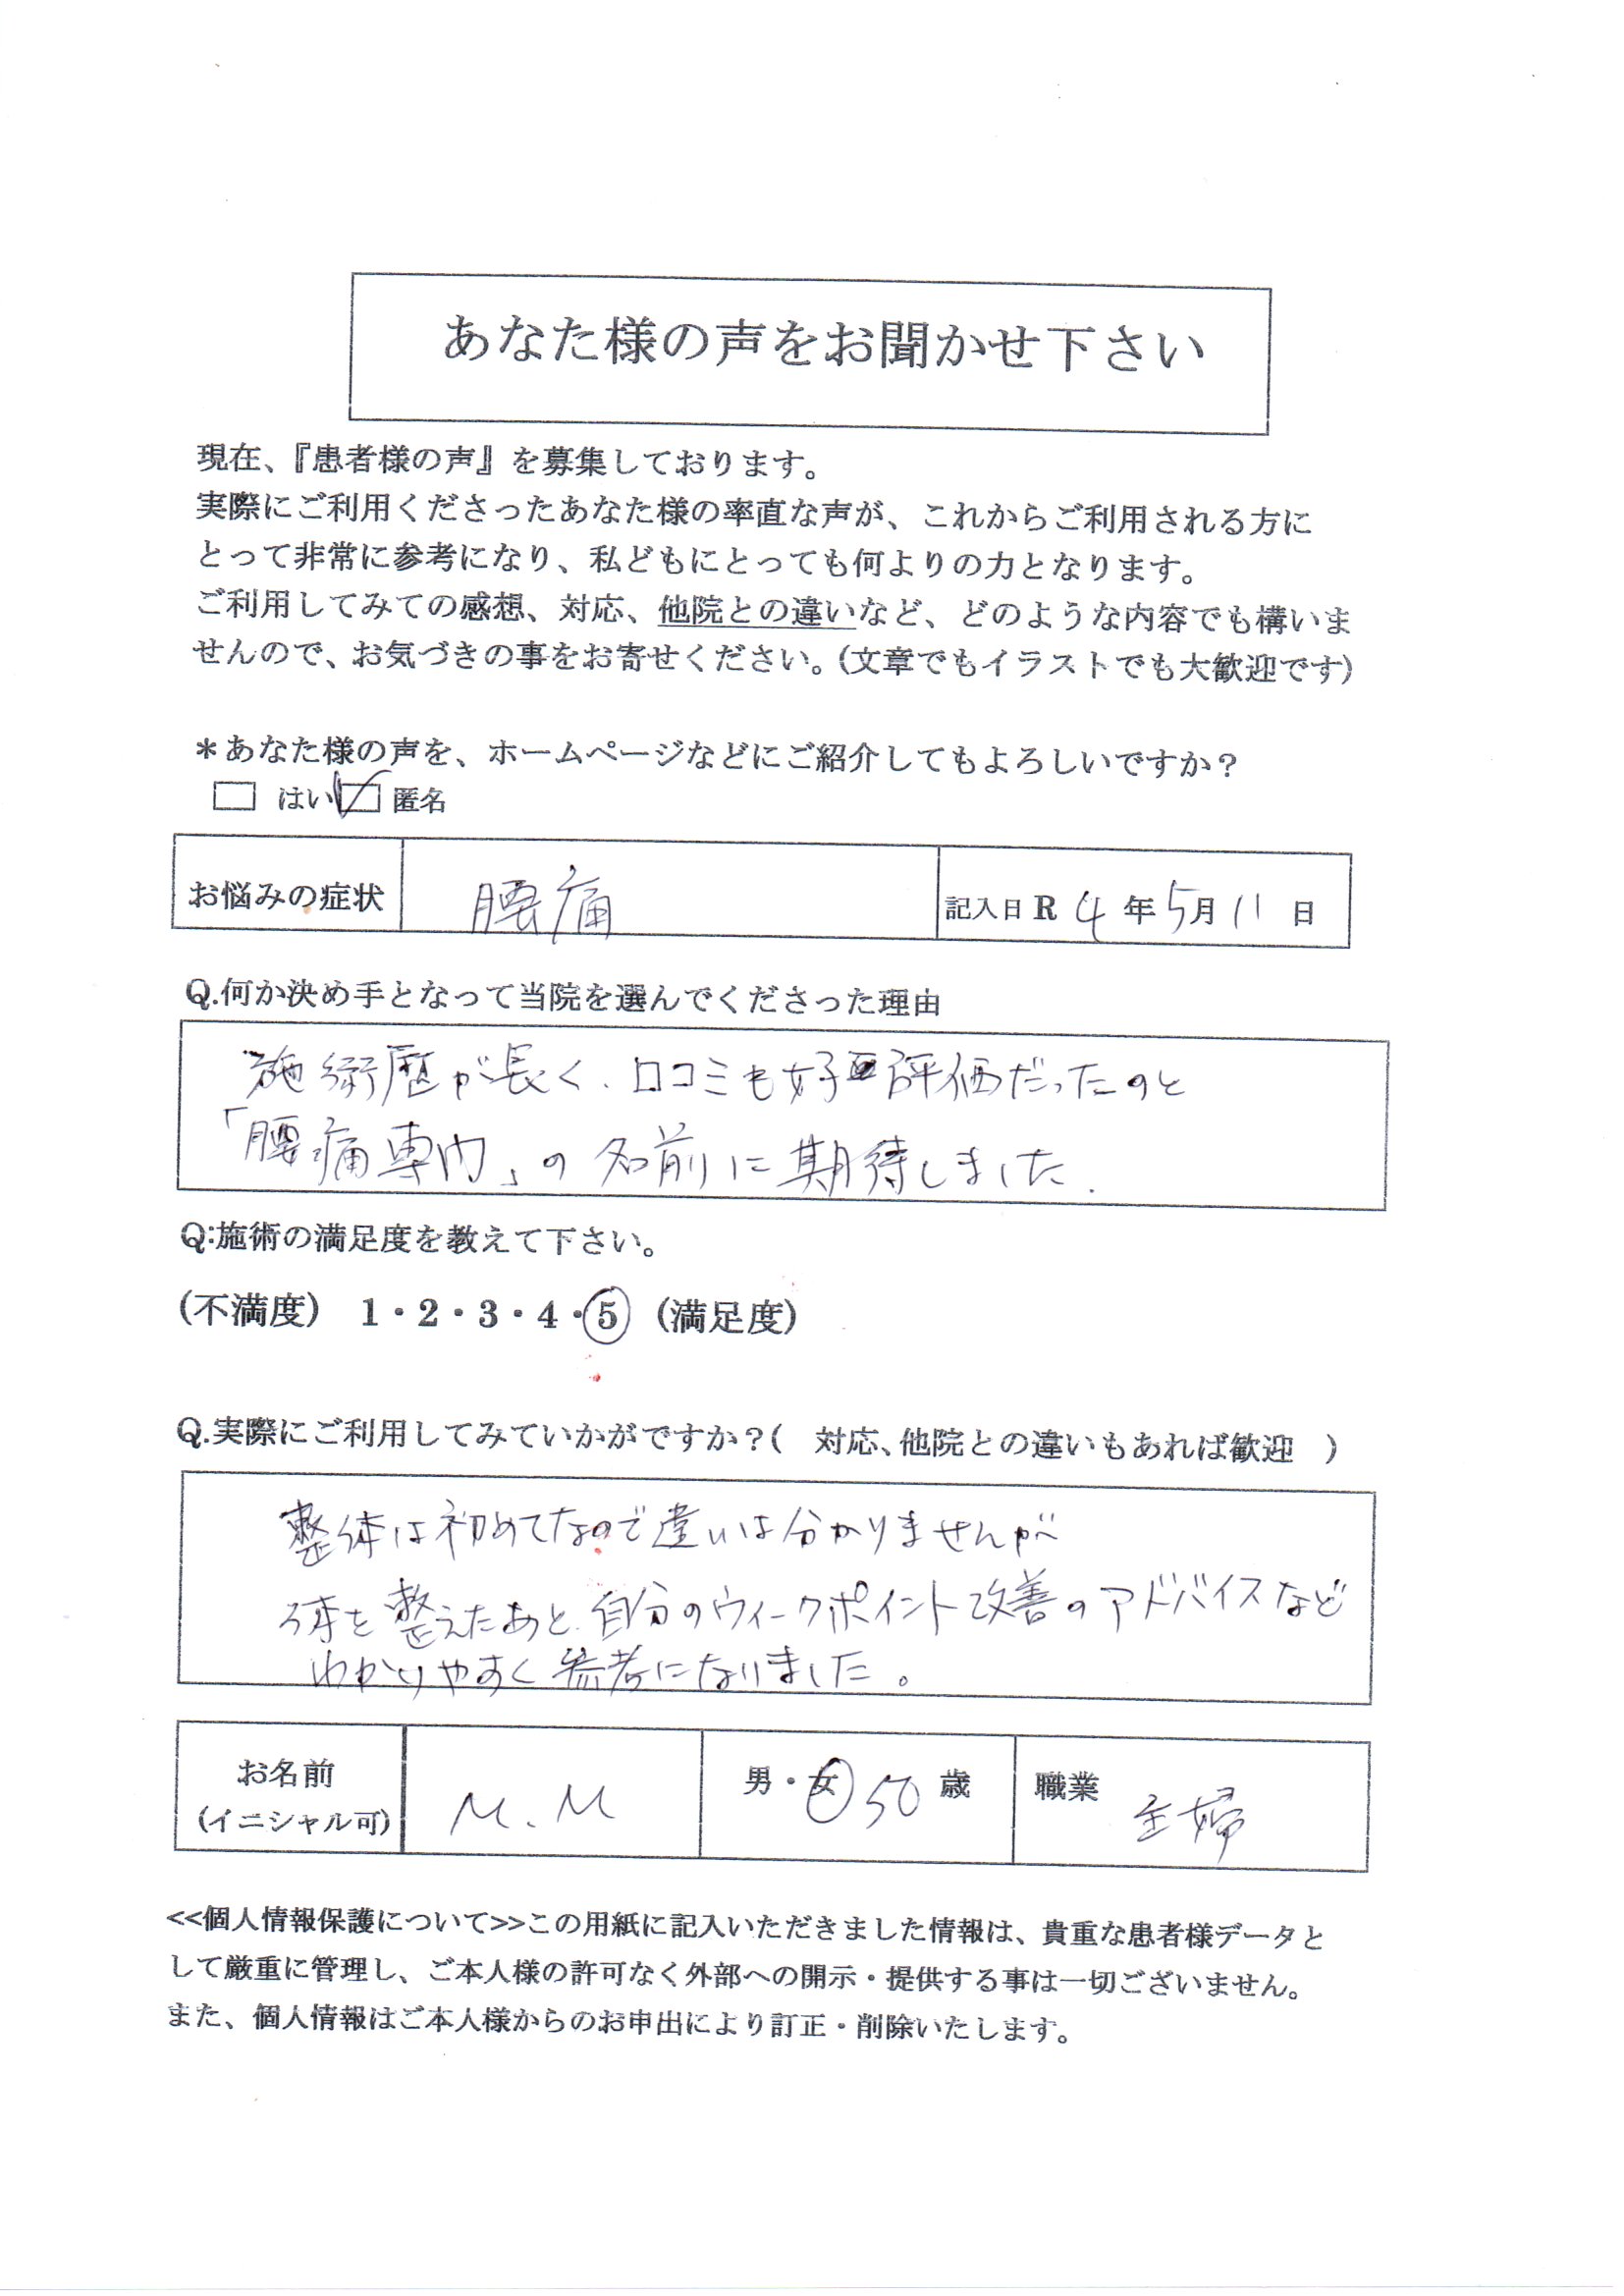 あなた様の声をお聞かせ下さい
現在、『患者様の声』を募集しております。
実際にご利用くださったあなた様の率直な声が、これからご利用される方に
とって非常に参考になり、私どもにとっても何よりの力となります。
ご利用してみての感想、対応、他院との違いなど、どのような内容でも構いま
せんので、お気づきの事をお寄せください。(文章でもイラストでも大歓迎です)
＊あなた様の声を、ホームページなどにご紹介してもよろしいですか？
はい 匿名
お悩みの症状 腰痛 記入日 R 4 年 5月 11 日
Q.何か決め手となって当院を選んでくださった理由
施術歴が長く、口コミも好評価だったのと
「腰痛専門」の名前に期待しました.
Q:施術の満足度を教えて下さい。
(不満度) 1・2・3・4・5 (満足度)
Q.実際にご利用してみていかがですか？( 対応、他院との違いもあれば歓迎 )
整体は初めてなので違いは分かりませんが
体を整えたあと、自分のウィークポイント改善のアドバイスなど
わかりやすく参考になりました。
お名前 (イニシャル可) M.M 男・女 50 歳 職業 主婦
<<個人情報保護について>>この用紙に記入いただきました情報は、貴重な患者様データと
して厳重に管理し、ご本人様の許可なく外部への開示・提供する事は一切ございません。
また、個人情報はご本人様からのお申出により訂正・削除いたします。